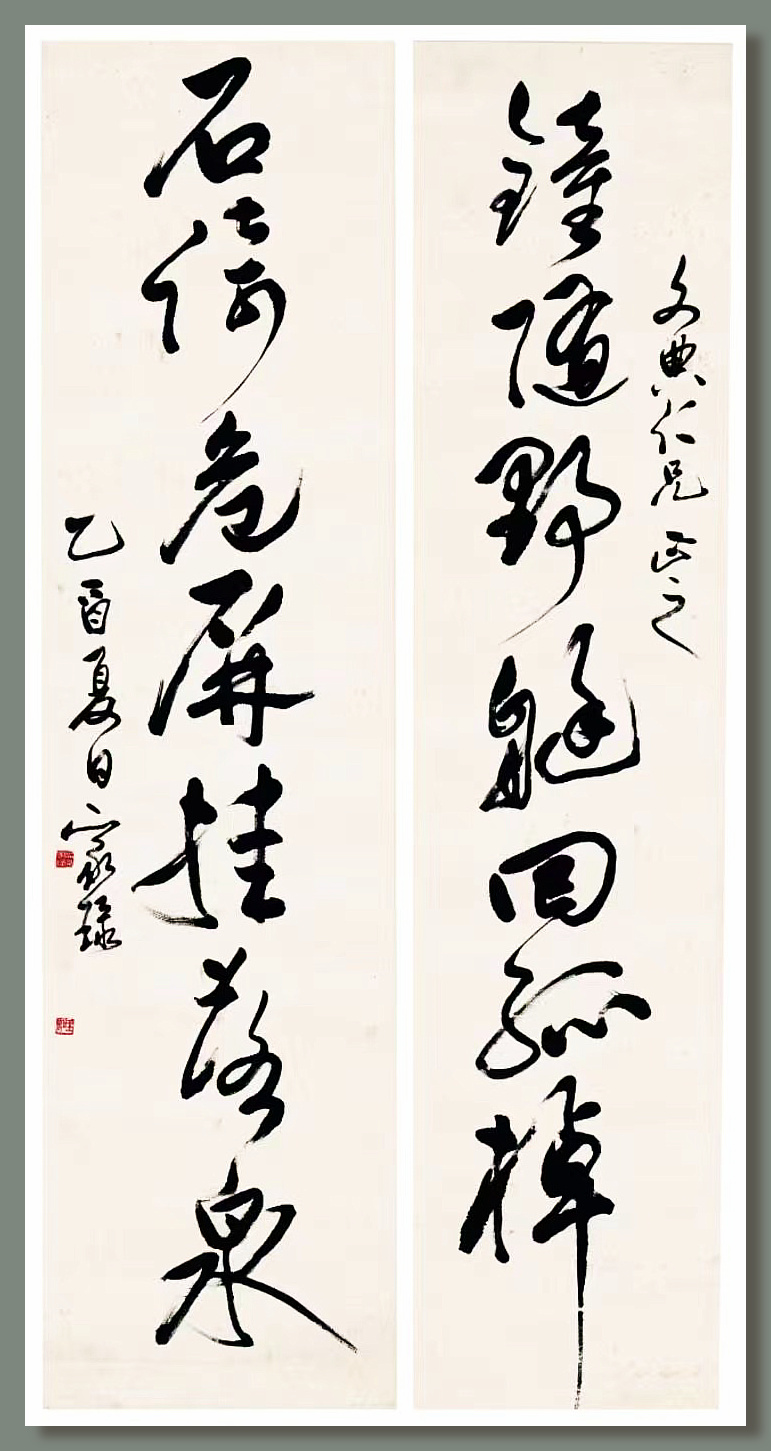 文典仁兄正之
鐘隨野艇回孤棹
石倚危屏挂落泉
乙酉夏日